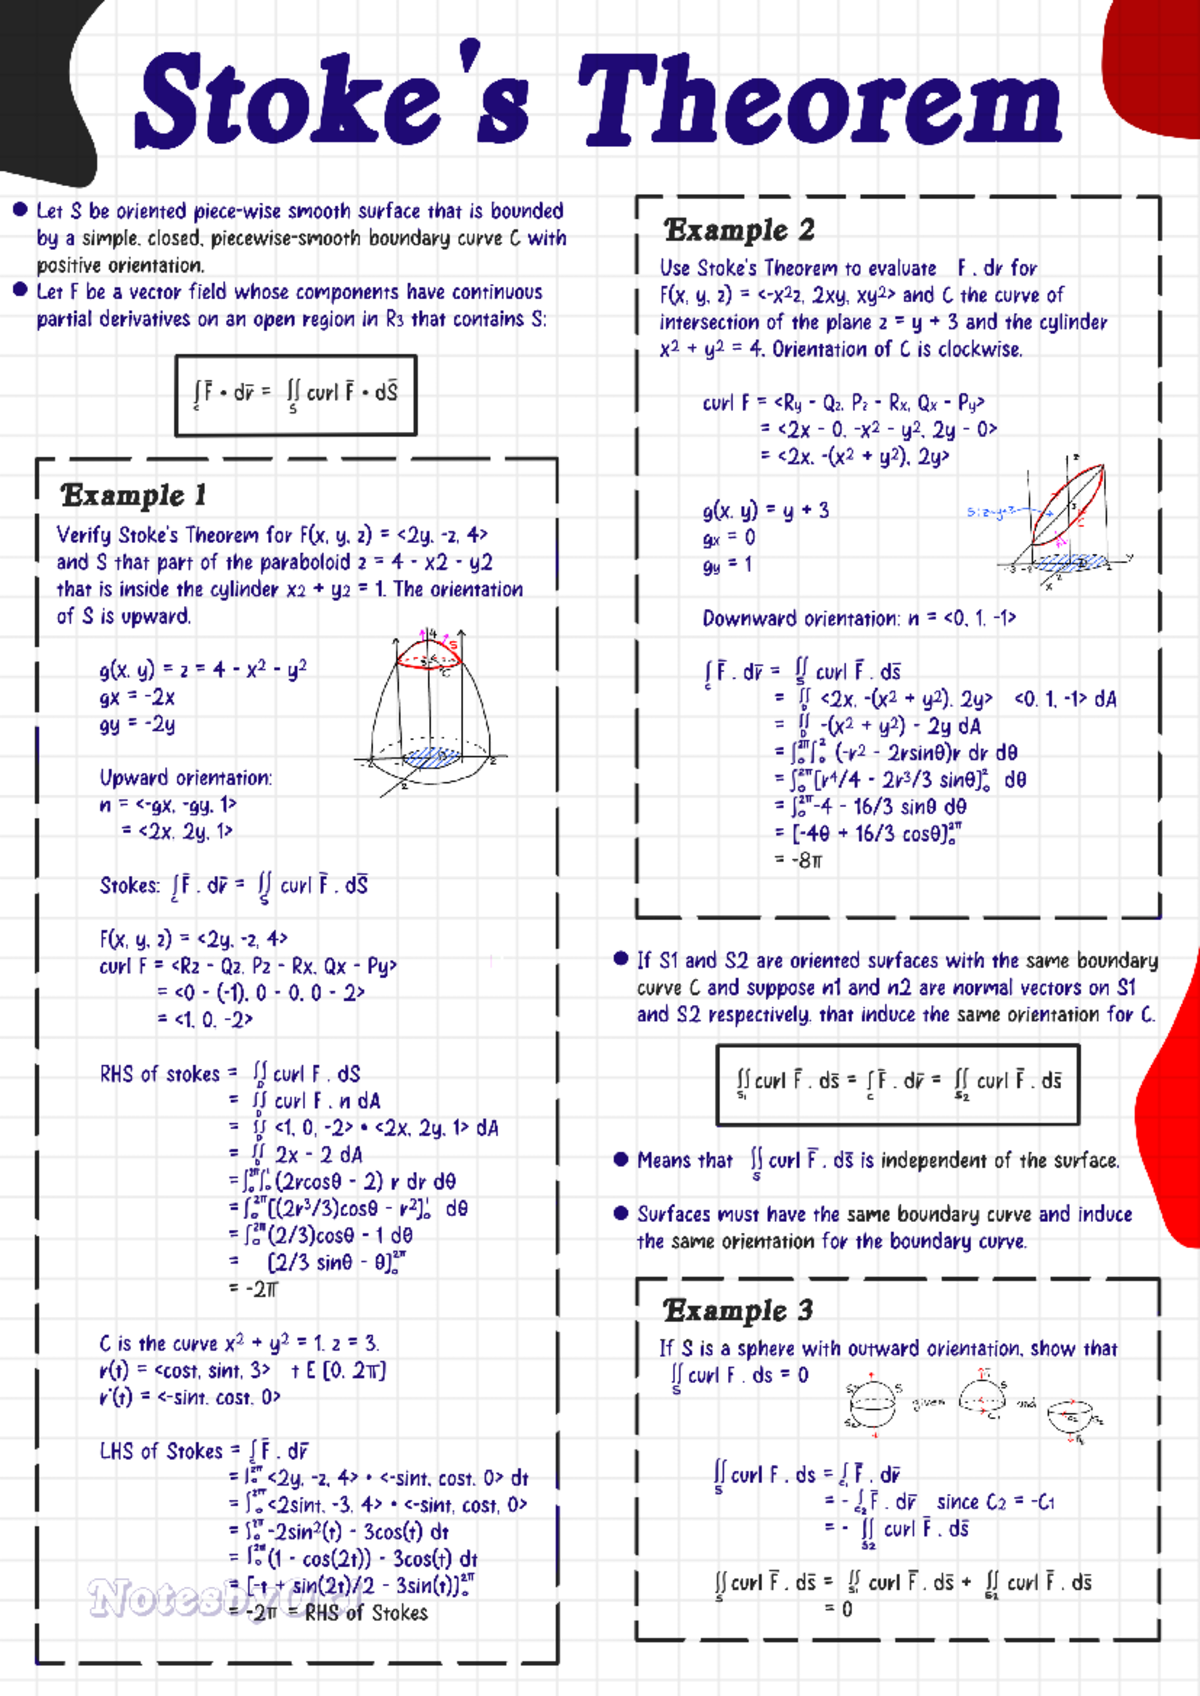 Stoke's Theorem
● Let S be oriented piece-wise smooth surface that is bounded
by a simple, closed, piecewise-smooth boundary curve C with
positive orientation.
● Let F be a vector field whose components have continuous
partial derivatives on an open region in R3 that contains S:
∫c F̄ • dr̄ = ∬S curl F̄ • dS̄
Example 1
Verify Stoke's Theorem for F(x, y, z) = <2y, -z, 4>
and S that part of the paraboloid z = 4 - x2 - y2
that is inside the cylinder x2 + y2 = 1. The orientation
of S is upward.
g(x, y) = z = 4 - x² - y²
gx = -2x
gy = -2y
Upward orientation:
n = <-gx, -gy, 1>
= <2x, 2y, 1>
Stokes: ∫c F̄ . dr̄ = ∬S curl F̄ . dS̄
F(x, y, z) = <2y, -z, 4>
curl F = <Rz - Qz, Pz - Rx, Qx - Py>
= <0 - (-1), 0 - 0, 0 - 2>
= <1, 0, -2>
RHS of stokes = ∬D curl F . dS
= ∬D curl F . n dA
= ∬D <1, 0, -2> • <2x, 2y, 1> dA
= ∬D 2x - 2 dA
= ∫₀²π ∫₀¹ (2rcosθ - 2) r dr dθ
= ∫₀²π [(2r³/3)cosθ - r²]₀¹ dθ
= ∫₀²π (2/3)cosθ - 1 dθ
= [2/3 sinθ - θ]₀²π
= -2π
C is the curve x² + y² = 1, z = 3.
r(t) = <cost, sint, 3> t E [0, 2π]
r'(t) = <-sint, cost, 0>
LHS of Stokes = ∫c F̄ . dr̄
= ∫₀²π <2y, -z, 4> • <-sint, cost, 0> dt
= ∫₀²π <2sint, -3, 4> • <-sint, cost, 0>
= ∫₀²π -2sin²(t) - 3cos(t) dt
= ∫₀²π (1 - cos(2t)) - 3cos(t) dt
= [-t + sin(2t)/2 - 3sin(t)]₀²π
= -2π = RHS of Stokes
Example 2
Use Stoke's Theorem to evaluate F . dr for
F(x, y, z) = <-x²z, 2xy, xy²> and C the curve of
intersection of the plane z = y + 3 and the cylinder
x² + y² = 4. Orientation of C is clockwise.
curl F = <Ry - Qz, Pz - Rx, Qx - Py>
= <2x - 0, -x² - y², 2y - 0>
= <2x, -(x² + y²), 2y>
S: z=y+3
g(x, y) = y + 3
gx = 0
gy = 1
Downward orientation: n = <0, 1, -1>
∫c F̄ . dr̄ = ∬S curl F̄ . ds̄
= ∬D <2x, -(x² + y²), 2y> <0, 1, -1> dA
= ∬D -(x² + y²) - 2y dA
= ∫₀²π ∫₀² (-r² - 2rsinθ)r dr dθ
= ∫₀²π [r⁴/4 - 2r³/3 sinθ]₀² dθ
= ∫₀²π -4 - 16/3 sinθ dθ
= [-4θ + 16/3 cosθ]₀²π
= -8π
● If S1 and S2 are oriented surfaces with the same boundary
curve C and suppose n1 and n2 are normal vectors on S1
and S2 respectively, that induce the same orientation for C.
∬S₁ curl F̄ . ds̄ = ∫c F̄ . dr̄ = ∬S₂ curl F̄ . ds̄
● Means that ∬S curl F̄ . ds̄ is independent of the surface.
● Surfaces must have the same boundary curve and induce
the same orientation for the boundary curve.
Example 3
If S is a sphere with outward orientation, show that
∬S curl F . ds = 0
given and
∬S curl F . ds = ∫c₁ F̄ . dr̄
= - ∫c₂ F̄ . dr̄ since C2 = -C1
= - ∬S2 curl F̄ . ds̄
∬S curl F̄ . ds̄ = ∬S₁ curl F̄ . ds̄ + ∬S₂ curl F̄ . ds̄
= 0